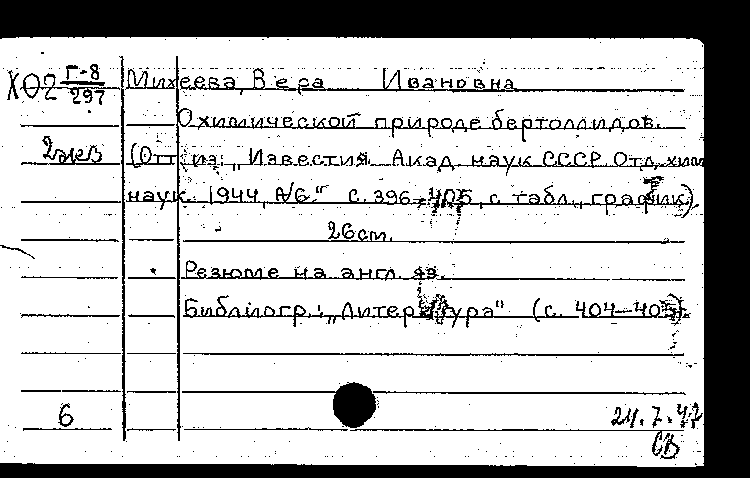 ХО2 Г-8/297 Михеева, Вера Ивановна
О химической природе бертоллидов.
2экз (Отт из: „Известия Акад. наук СССР. Отд. хим
наук. 1944, №6." с. 396-405, с табл., график).
26 cm.
Резюме на англ. яз.
Библиогр.: „Литература" (с. 404-405).
6 24.7.47
СВ